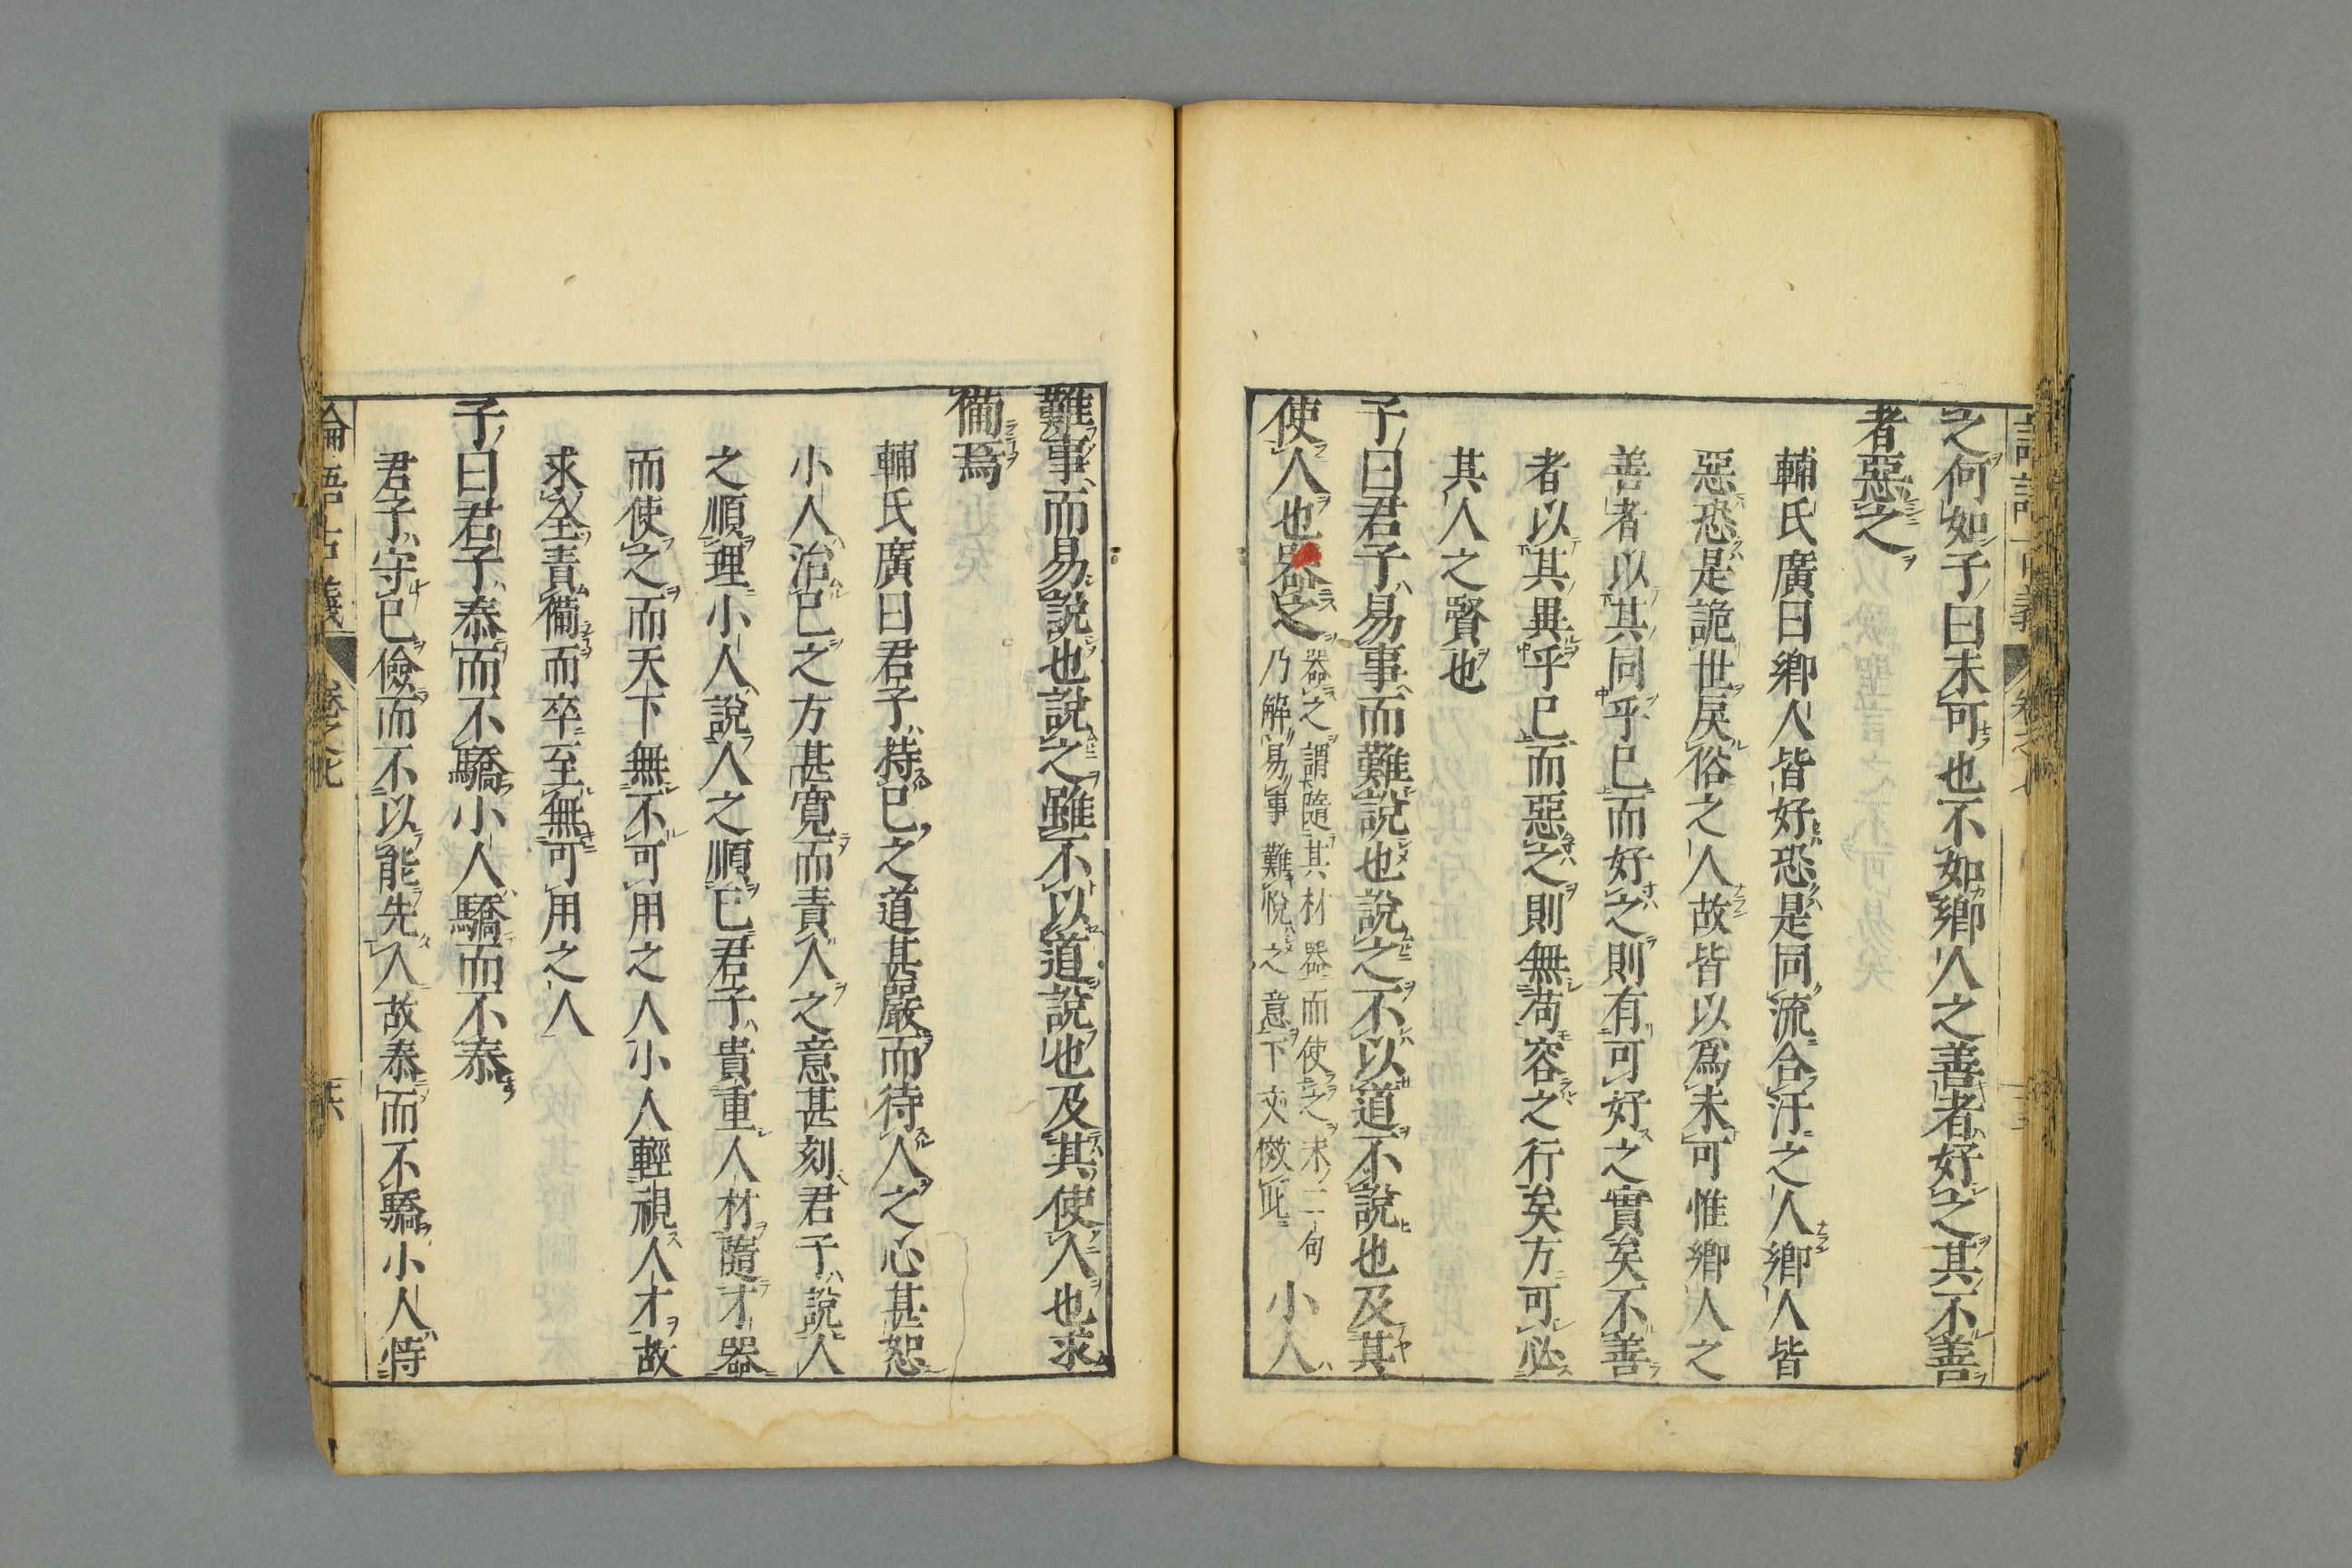 之何如子曰未可也不如鄉人之善者好之其不善
者惡之
輔氏廣曰鄉人皆好恐是同流合汙之人鄉人皆
惡恐是詭世戾俗之人故皆以爲未可惟鄉人之
善者以其同乎已而好之則有可好之實矣不善
者以其異乎已而惡之則無苟容之行矣方可必
其人之賢也
子曰君子易事而難說也說之不以道不說也及其
使人也器之
器之謂隨其材器而使之末二句
乃解易事難悅之意下文倣此
小人
難事而易說也說之雖不以道說也及其使人也求
備焉
輔氏廣曰君子持已之道甚嚴而待人之心甚恕
小人治已之方甚寬而責人之意甚刻君子說人
之順理小人說人之順已君子貴重人材隨才器
而使之而天下無不可用之人小人輕視人才故
求全責備而卒至無可用之人
子曰君子泰而不驕小人驕而不泰
君子守已儉而不以能先人故泰而不驕小人恃
論語古義 卷之七